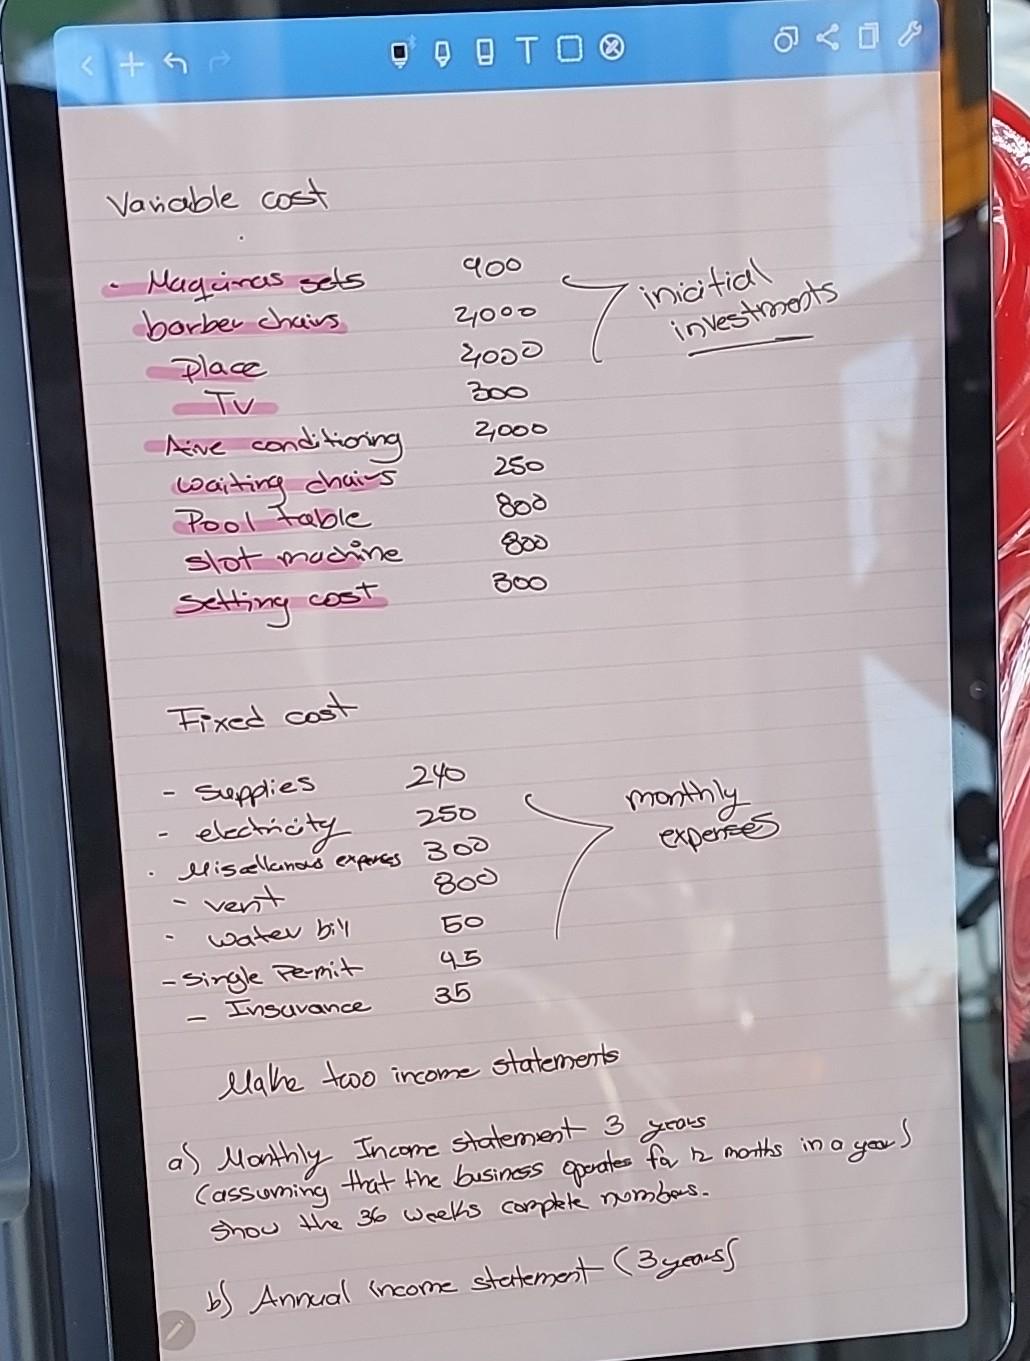 Variable cost
- Maquinas sets 900
barber chairs 2,000
Place 2,000
TV 300
Aire conditioring 2,000
waiting chairs 250
Pool table 800
slot machine 800
Setting cost 300
inicitial
investments
Fixed cost
- Supplies 240
- electricity 250
- Misellanous expenses 300
- rent 800
- water bill 50
- Single Permit 45
- Insurance 35
monthly
expenses
Make two income statements
a) Monthly Income statement 3 years
(assuming that the business operates for 12 months in a year)
show the 36 weeks complete numbers.
b) Annual income statement (3 years)